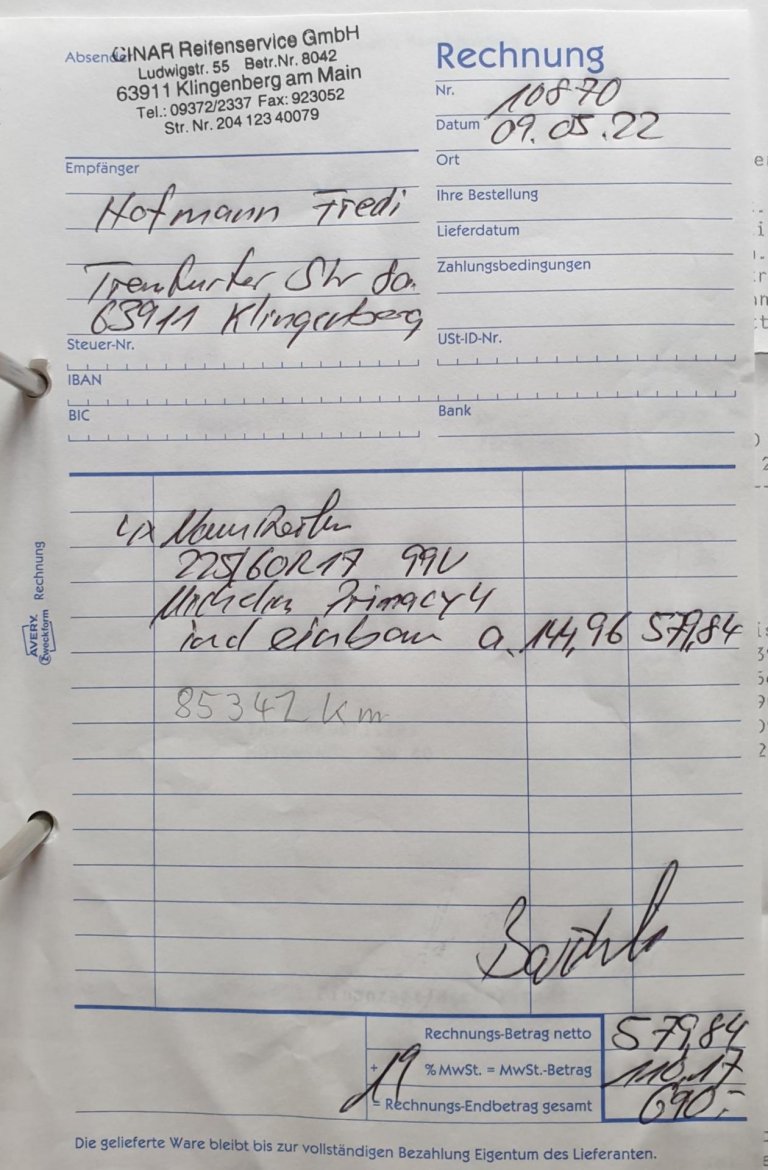 Absender
CINAR Reifenservice GmbH
Ludwigstr. 55 Betr.Nr. 8042
63911 Klingenberg am Main
Tel.: 09372/2337 Fax: 923052
Str. Nr. 204 123 40079
Rechnung
Nr. 10870
Datum 09.05.22
Ort
Ihre Bestellung
Lieferdatum
Zahlungsbedingungen
Empfänger
Hofmann Fredi
Trenfurter Str 8a.
63911 Klingenberg
Steuer-Nr.
USt-ID-Nr.
IBAN
BIC
Bank
4x NeuReifen
225/60R17 99V
Michelin Primacy 4
incl einbau a. 144,96 579,84
85342 Km
AVERY
Zweckform
Rechnung
Rechnungs-Betrag netto 579,84
+ 19 % MwSt. = MwSt.-Betrag 110,17
= Rechnungs-Endbetrag gesamt 690,-
Die gelieferte Ware bleibt bis zur vollständigen Bezahlung Eigentum des Lieferanten.